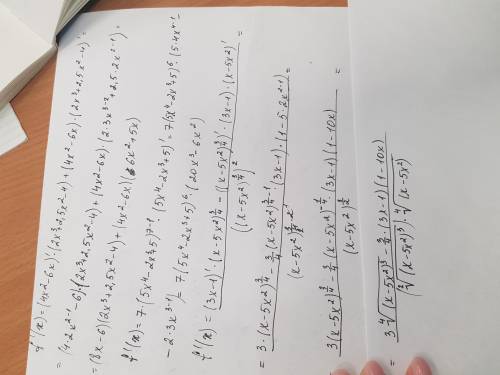 f'(x) = (4x²-6x)'·(2x³+2,5x²-4)+(4x²-6x)·(2x³+2,5x²-4)' =
= (4·2x²⁻¹-6)·(2x³+2,5x²-4)+(4x²-6x)·(2·3x³⁻¹+2,5·2x²⁻¹) =
= (8x-6)(2x³+2,5x²-4)+(4x²-6x)(6x²+5x)
f'(x) = 7·(5x⁴-2x³+5)⁷⁻¹·(5x⁴-2x³+5)' = 7(5x⁴-2x³+5)⁶·(5·4x⁴⁻¹-
-2·3x³⁻¹) = 7(5x⁴-2x³+5)⁶·(20x³-6x²)
f'(x) = ((3x-1)'·(x-5x²)^(3/4) - ((x-5x²)^(3/4))'·(3x-1)·(x-5x²)')/((x-5x²)^(3/4))² =
= (3·(x-5x²)^(3/4) - 3/4(x-5x²)^(3/4-1)·(3x-1)·(1-5·2x²⁻¹))/(x-5x²)^(3/4·2) =
(3(x-5x²)^(3/4) - 3/4(x-5x²)^(-1/4)·(3x-1)(1-10x))/(x-5x²)^(3/2) =